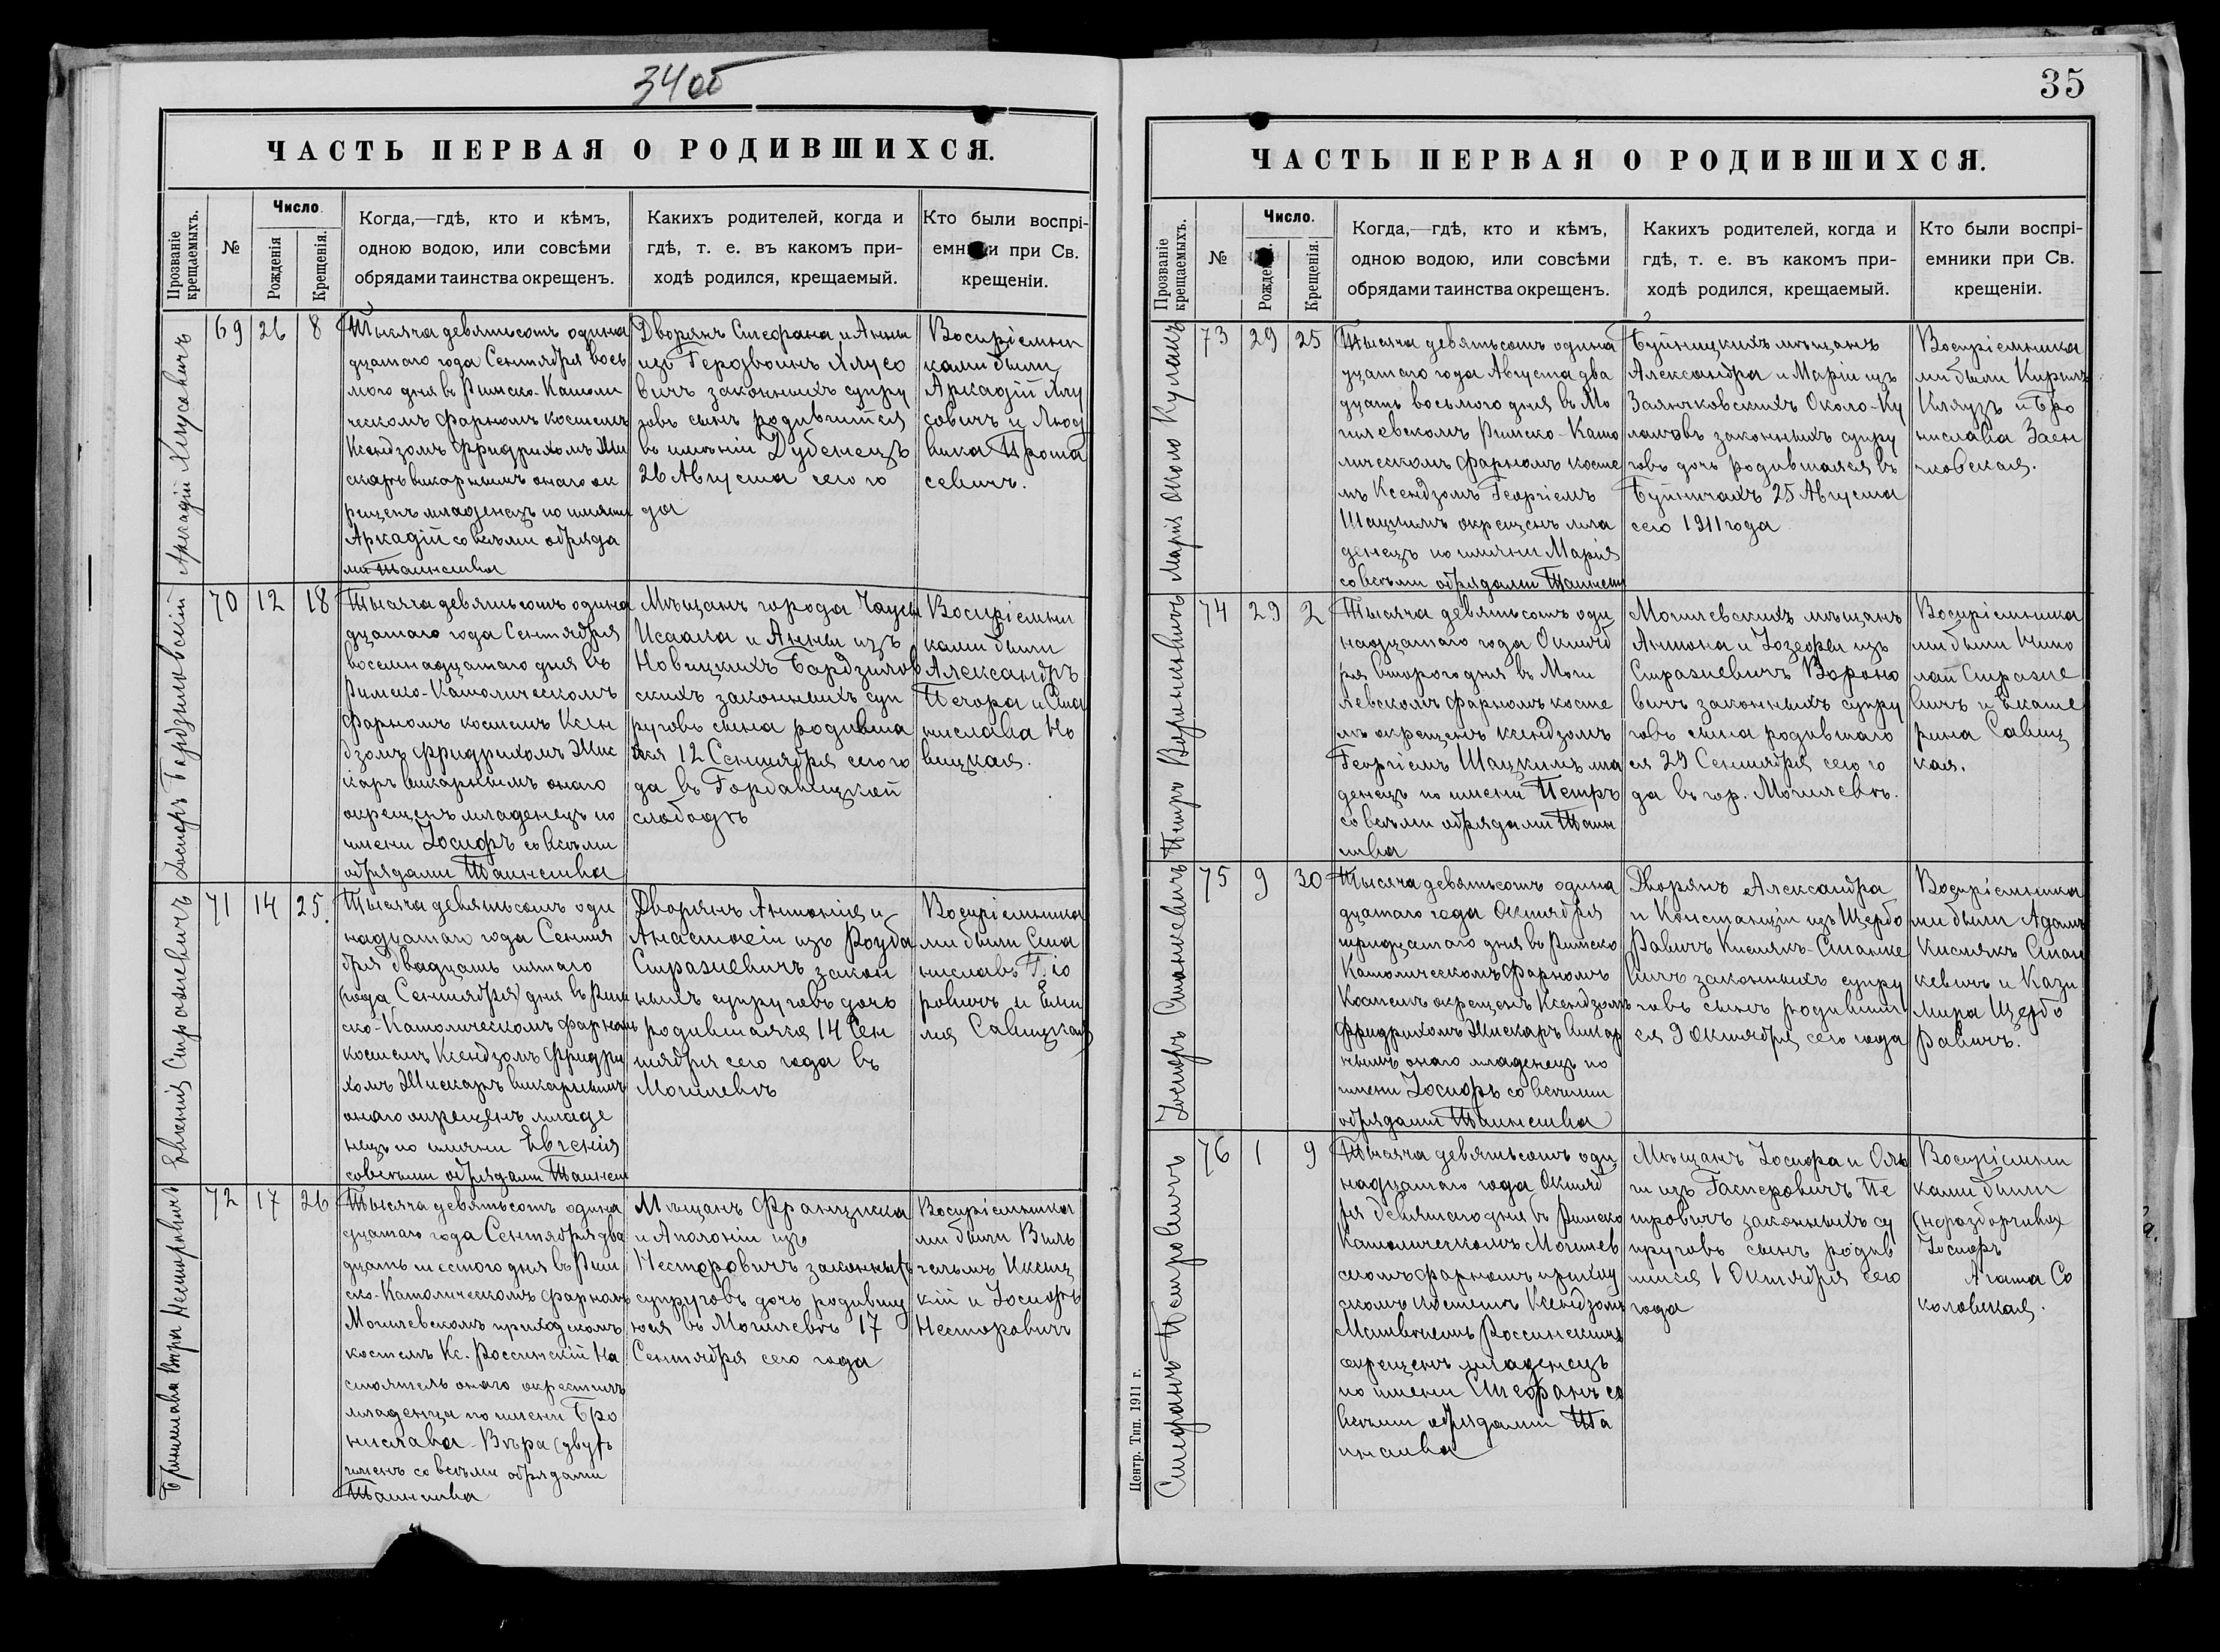 34 об
ЧАСТЬ ПЕРВАЯ О РОДИВШИХСЯ.
Прозваніе крещаемыхъ.
№
Число.
Рожденія
Крещенія.
Когда,—гдѣ, кто и кѣмъ,
одною водою, или совсѣми
обрядами таинства окрещенъ.
Какихъ родителей, когда и
гдѣ, т. е. въ какомъ при-
ходѣ родился, крещаемый.
Кто были воспрі-
емники при Св.
крещеніи.
Аркадій Хлусовичъ
69 26 8
Тысяча девятьсотъ одина
дцатаго года Сентября вось
мого дня въ Римско-Католи
ческомъ фарномъ костелѣ
Ксендзомъ Фридрихомъ Жи
скаръ викарнымъ онаго ок
рещенъ младенецъ по имяни
Аркадій со всѣми обряда
ми Таинства
Дворянъ Стефана и Анны
изъ Герозвоинъ Хлусо
вичъ законныхъ супру
говъ сынъ родившійся
въ имѣніи Дубенецъ
26 Августа сего го
да
Воспріемни
ками были
Аркадій Хлу
совичъ и Люд
вика Прота
севичъ.
Іосифъ Бардзиловскій
70 12 18
Тысяча девятьсотъ одина
дцатаго года Сентября
восемнадцатаго дня въ
Римско-Католическомъ
Фарномъ костелѣ Ксен
дзомъ Фридрихомъ Жис
каръ викарнымъ онаго
окрещенъ младенецъ по
имени Іосифъ со всѣми
обрядами Таинства
Мѣщанъ города Чаусы
Исаака и Анны изъ
Новицкихъ Бардзилов
скихъ законныхъ суп
руговъ сына родивша
яся 12 Сентября сего го
да въ Горбавицкой
слободѣ
Воспріемни
ками были
Александръ
Печора и Ста
нислава Но
вицкая.
Евгенія Стразиевичъ
71 14 25.
Тысяча девятьсотъ оди
надцатаго года Сентя
бря двадцать пятаго
(года Сентября) дня въ Рим
ско-Католическомъ фарномъ
костелѣ Ксендзомъ Фридри
хомъ Жискаръ викарнымъ
онаго окрещенъ младе
нецъ по имяни Евгенія
совсѣми обрядами Таинст
Дворянъ Антонія и
Анастасіи изъ Роуба
Стразиевичъ закон
ныхъ супруговъ дочь
родившаяся 14 Сен
тября сего года въ
Могилевѣ
Воспріемника
ми были Ста
ниславъ
ровичъ и Еми
лія Савицкая
Бронислава Вѣра Несторовичъ
72 17 26
Тысяча девятьсотъ одина
дцатаго года Сентября два
дцать шестого дня въ Рим
ско-Католическомъ фарномъ
Могилевскомъ приходскомъ
костелѣ Кс. Россинскій На
стоятель онаго окрестилъ
младенца по имени Бро
нислава-Вѣра (двухъ
именъ со всѣми обрядами
Таинства
Мѣщанъ Франциска
и Аполоніи изъ
Несторовичъ законныхъ
супруговъ дочь родивш
юся въ Могилевѣ 17
Сентября сего года
Воспріемника
ми были Виль
гельмъ
кій и Іосифъ
Несторовичъ
35
ЧАСТЬ ПЕРВАЯ О РОДИВШИХСЯ.
Прозваніе крещаемыхъ.
№
Число.
Рожденія.
Крещенія.
Когда,—гдѣ, кто и кѣмъ,
одною водою, или совсѣми
обрядами таинства окрещенъ.
Какихъ родителей, когда и
гдѣ, т. е. въ какомъ при-
ходѣ родился, крещаемый.
Кто были воспрі-
емники при Св.
крещеніи.
Марія Около Кулакъ
73 29 25
Тысяча девятьсотъ одина
дцатаго года Августа два
дцать восьмого дня въ Мо
гилевскомъ Римско-Като
лическомъ фарномъ косте
лѣ Ксендзомъ Георгіемъ
Шацкимъ окрещенъ мла
денецъ по имяни Марія
со всѣми обрядами Таинст
Буйницкихъ мѣщанъ
Александра и Маріи изъ
Заянчковскихъ Около-Ку
лаковъ законныхъ супру
говъ дочь родившаяся въ
Буйничахъ 25 Августа
сего 1911 года
Воспріемника
ми были Кирилъ
и Бро
нислава Заен
чковская.
Петръ Вороновичъ
74 29 2
Тысяча девятьсотъ оди
надцатаго года Октяб
ря второго дня въ Моги
левскомъ фарномъ косте
лѣ окрещенъ ксендзомъ
Георгіемъ Шацкимъ мла
денецъ по имени Петръ
со всѣми обрядами Таин
ства
Могилевскихъ мѣщанъ
Антона и Іозефы изъ
Стразиевичъ Вороно
вичъ законныхъ супру
говъ сына родившаго
ся 29 Сентября сего го
да въ гор. Могилевѣ.
Воспріемника
ми были Нико
лай Стразие
вичъ и Екате
рина Савиц
кая.
Іосифъ Станкевичъ
75 9 30
Тысяча девятьсотъ одина
дцатаго года Октября
тридцатаго дня въ Римско
Католическомъ Фарномъ
Костелѣ окрещенъ Ксендзомъ
Фридрихомъ Жискаръ викар
нымъ онаго младенецъ по
имени Іосифъ со всѣми
обрядами Таинства
Дворянъ Александра
и Констанціи изъ Щербо
Равичъ Кислякъ-Станке
вичъ законныхъ супру
говъ сынъ родивший
ся 9 Октября сего года
Воспріемника
ми были Адамъ
Кислякъ Стан
кевичъ и Кази
мира Щербо
Равичъ.
Стефанъ Петровичъ
76 1 9
Тысяча девятьсотъ оди
надцатаго года Октяб
ря девятаго дня въ Римско
Католическомъ Могилев
скомъ фарномъ приход
скомъ костелѣ Ксендзомъ
Матвѣемъ Россинскимъ
окрещенъ младенецъ
по имени Стефанъ со
всѣми обрядами Та
инства
Мѣщанъ Іосифа и Оль
ги изъ Гасперовичъ Пе
тровичъ законныхъ су
пруговъ сынъ родив
шися 1 Октября сего
года
Воспріемни
ками были
(неразборчивых
Іосифъ
Агата Со
коловская.
Центр. Тип. 1911 г.